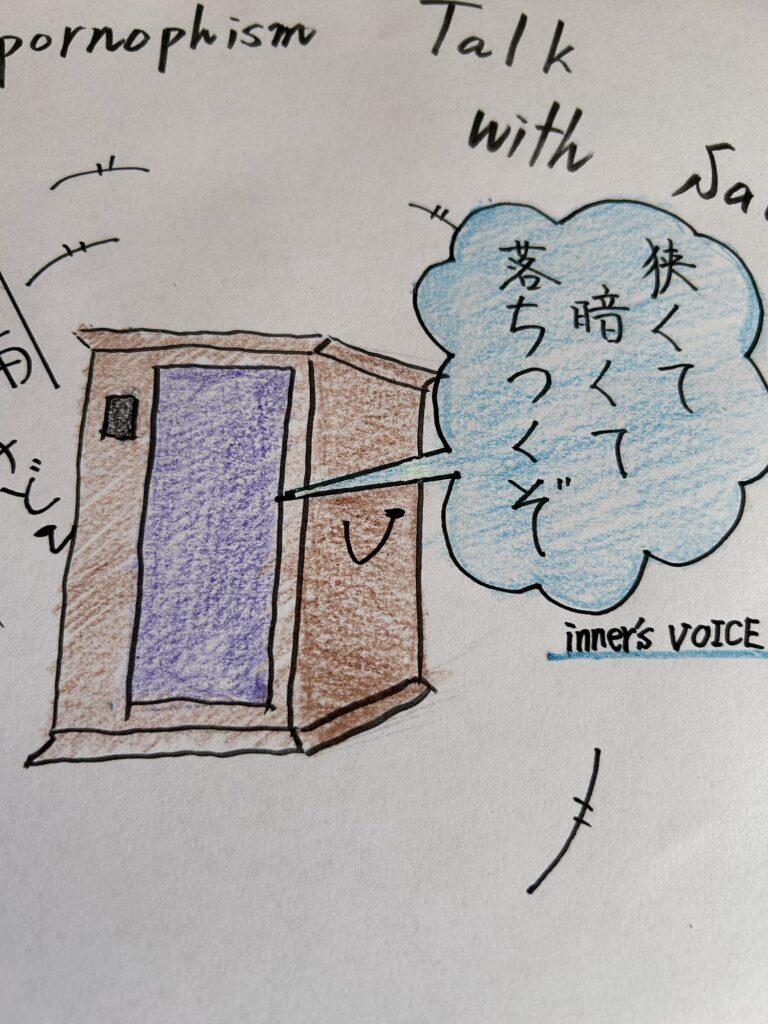 pornophism
Talk
with
狭くて
暗くて
落ちつくぞ
inner's VOICE